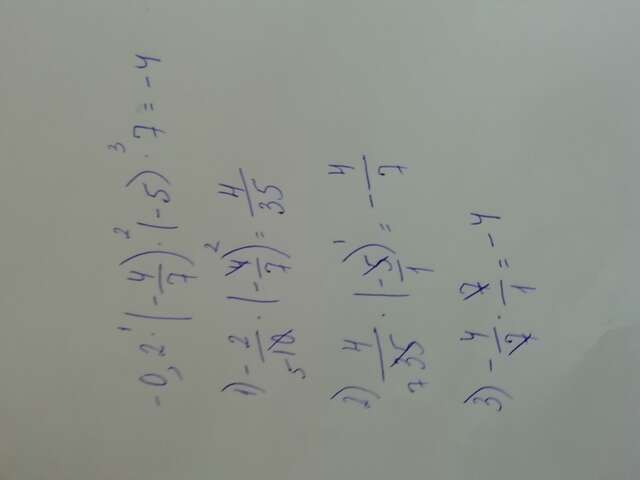 -0,2 ·¹ (-4/7) ·² (-5) ·³ 7 = -4
1) -2/10 5 · (-4/7) 2 = 4/35
2) 4/35 7 · (-5/1) 1 = -4/7
3) -4/7 · 7/1 = -4